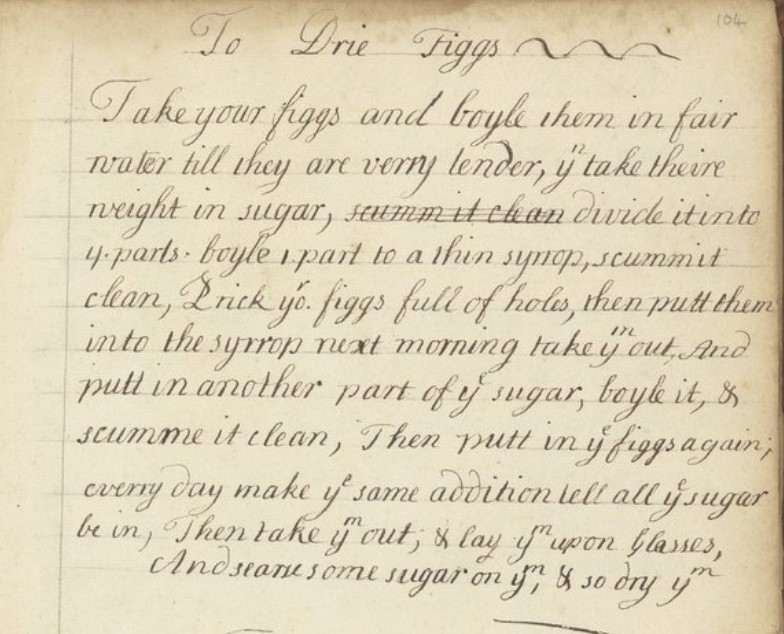 104
To Drie Figgs
Take your figgs and boyle them in fair
water till they are verry tender, yⁿ take theire
weight in sugar, scumm it clean divide it into
4. parts. boyle 1. part to a thin syrrop, scumm it
clean, Prick yoʳ. figgs full of holes, then putt them
into the syrrop next morning take yᵐ out, And
putt in another part of yᵉ sugar, boyle it, &
scumme it clean, Then putt in yᵉ figgs again;
everry day make yᵉ same addition tell all yᵉ sugar
be in, Then take yᵐ out, & lay yᵐ upon Glasses,
And searse some sugar on yᵐ, & so dry yᵐ